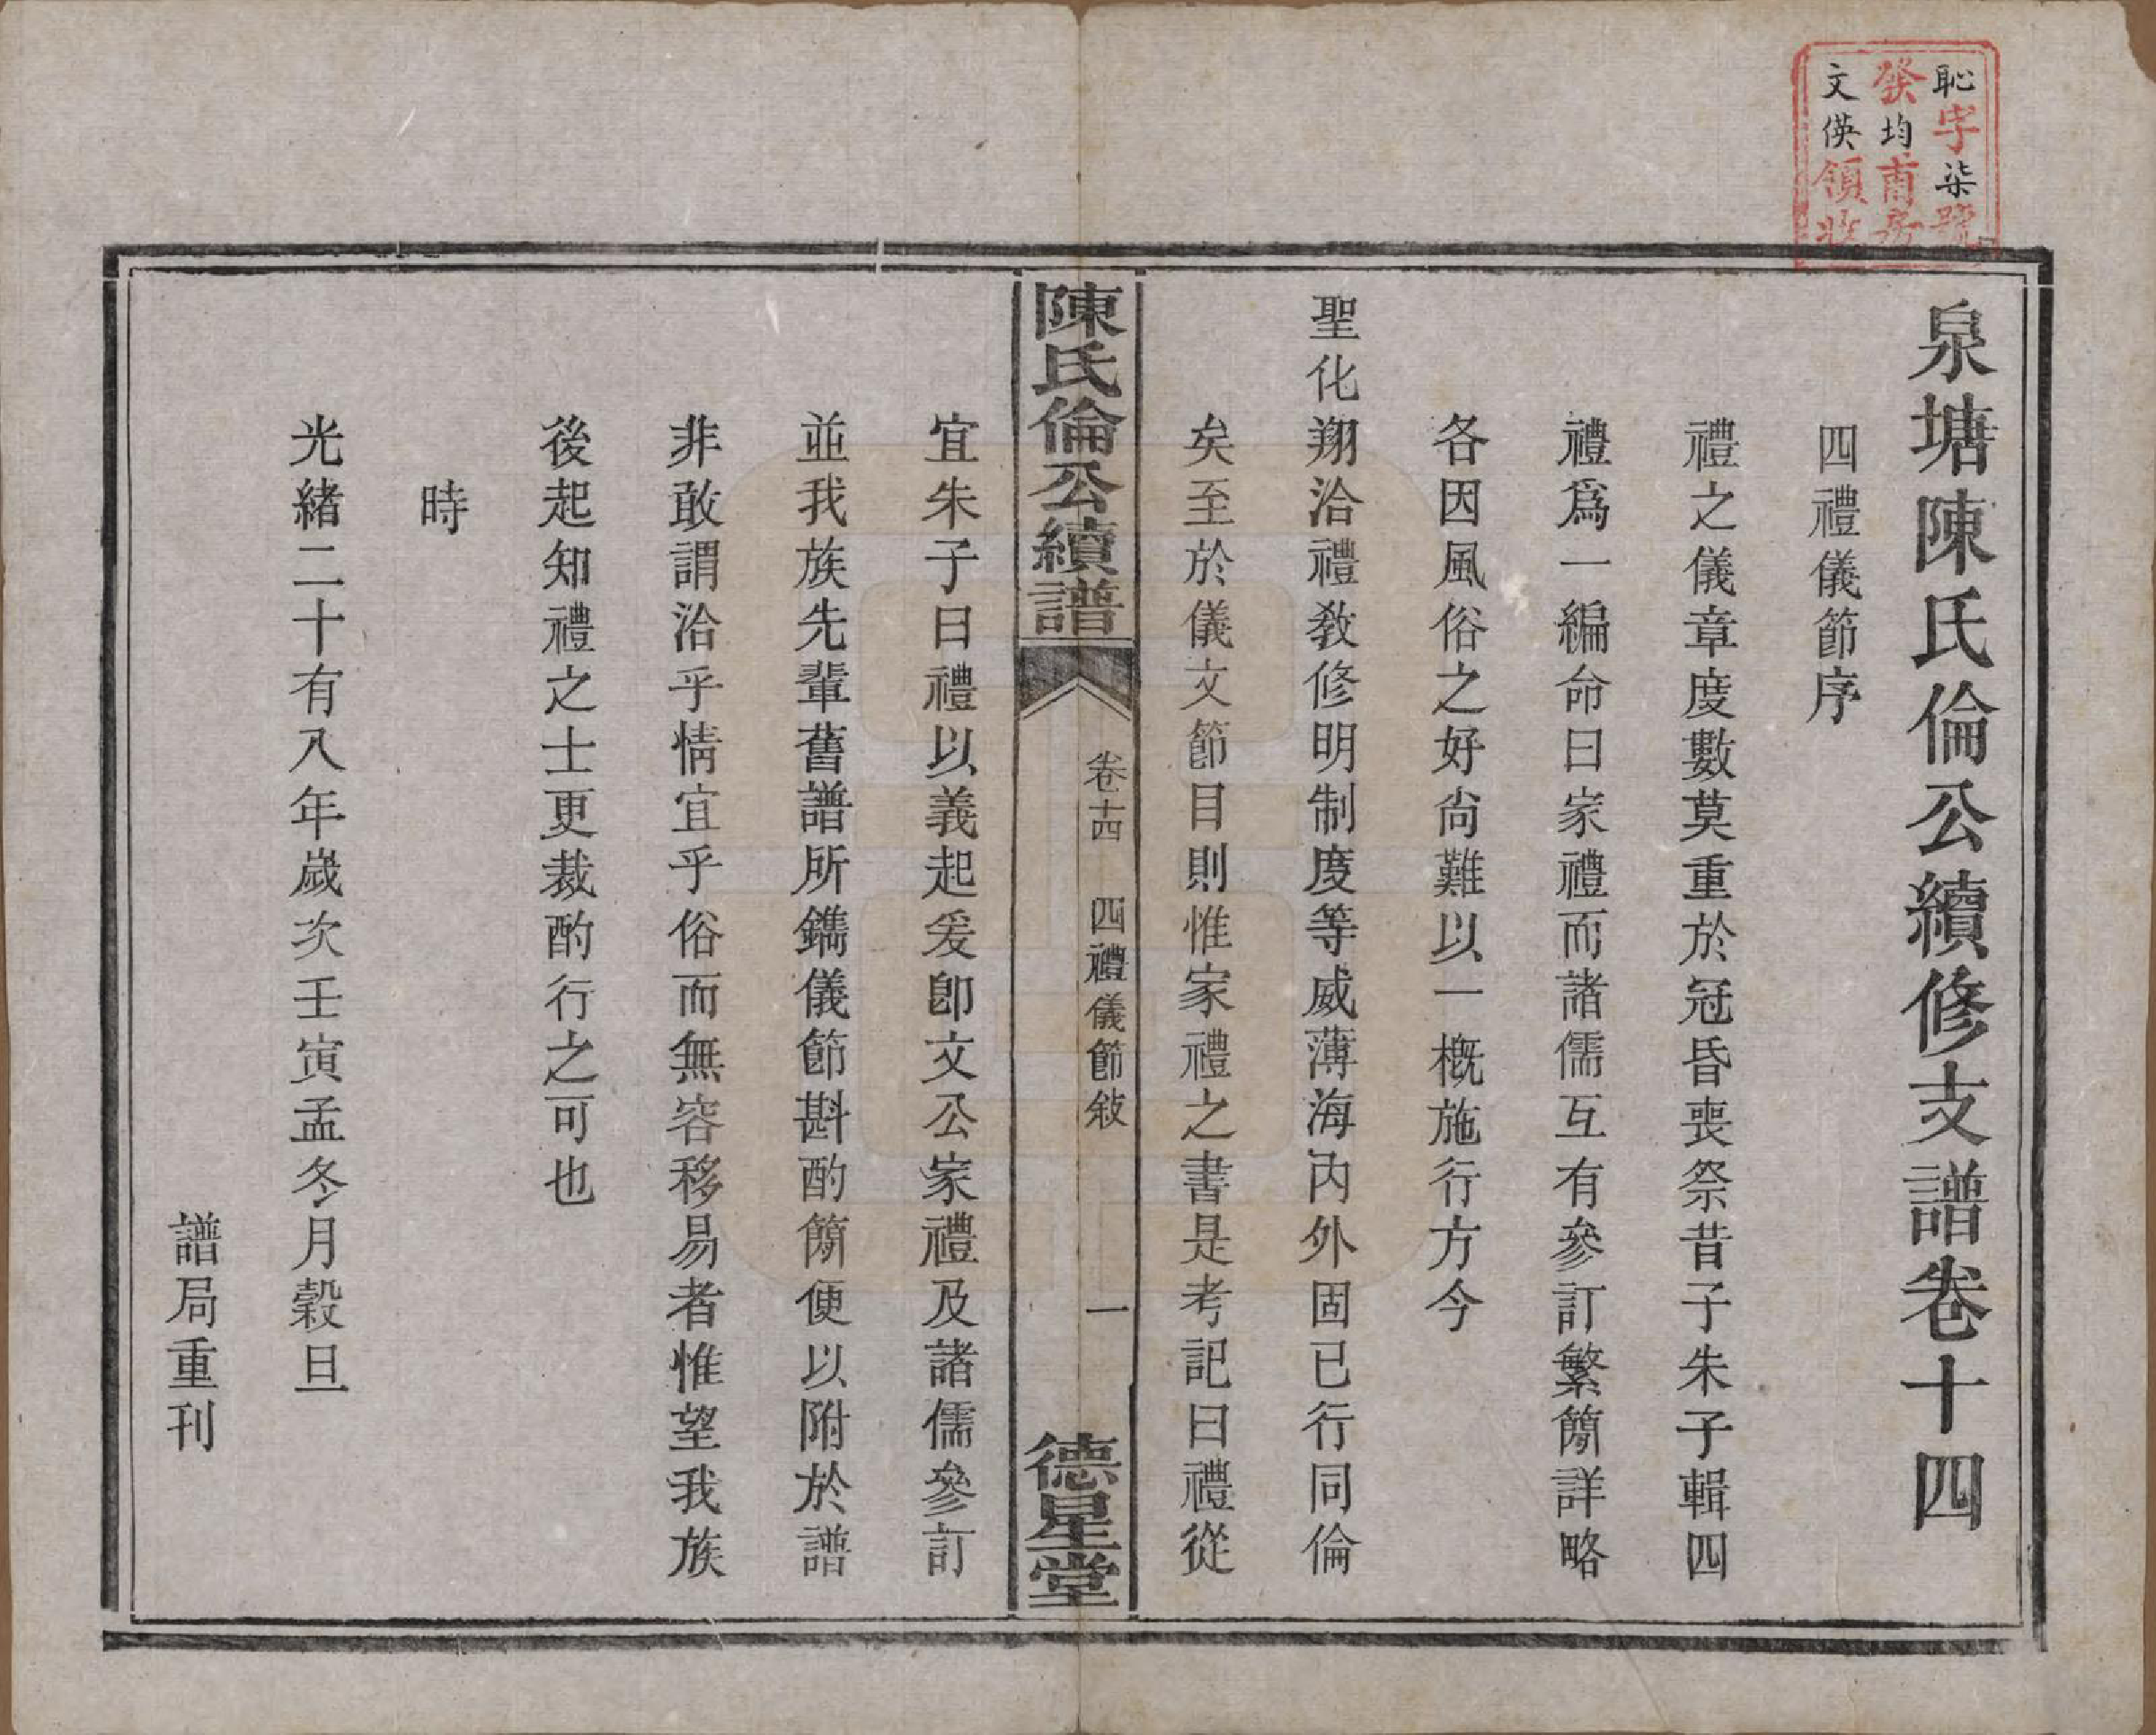 恥字柒號
發均甫房
文偀領收
泉塘陳氏倫公續修支譜卷十四
四禮儀節序
禮之儀章度數莫重於冠昏喪祭昔子朱子輯四
禮爲一編命曰家禮而諸儒互有參訂繁簡詳略
各因風俗之好尚難以一概施行方今
聖化翔洽禮教修明制度等威薄海內外固已行同倫
矣至於儀文節目則惟家禮之書是考記曰禮從
陳氏倫公續譜 卷十四 四禮儀節敍 一 德星堂
宜朱子曰禮以義起爰卽文公家禮及諸儒參訂
並我族先輩舊譜所鐫儀節斟酌簡便以附於譜
非敢謂洽乎情宜乎俗而無容移易者惟望我族
後起知禮之士更裁酌行之可也
時
光緒二十有八年歲次壬寅孟冬月穀旦
譜局重刊